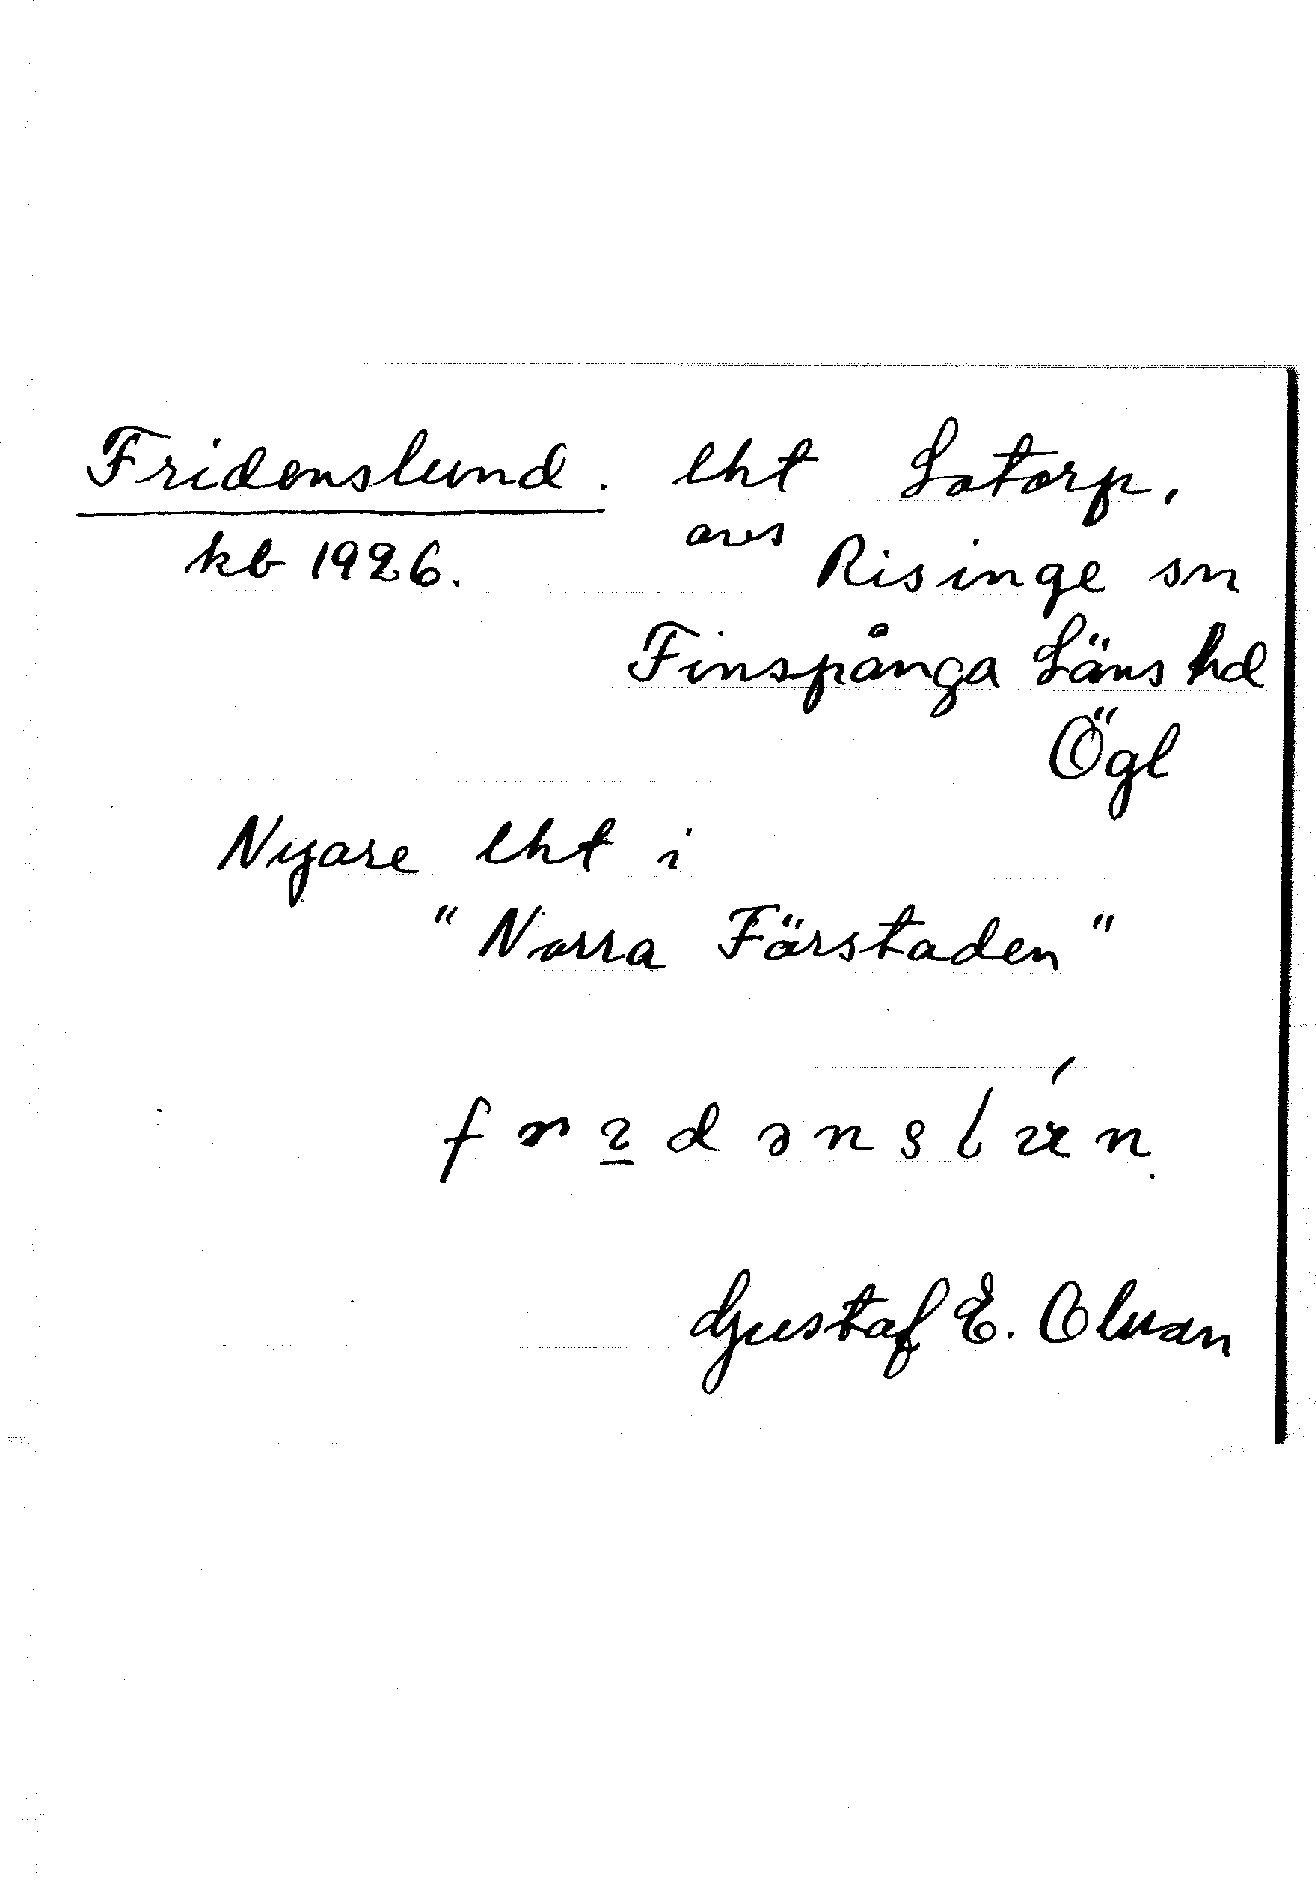 Fridenslund. lht Lotorp,
kb 1926. avs Risinge sn
Finspånga Läns hd
Ögl
Nyare lht i
"Norra Förstaden"
Gustaf E. Olsson